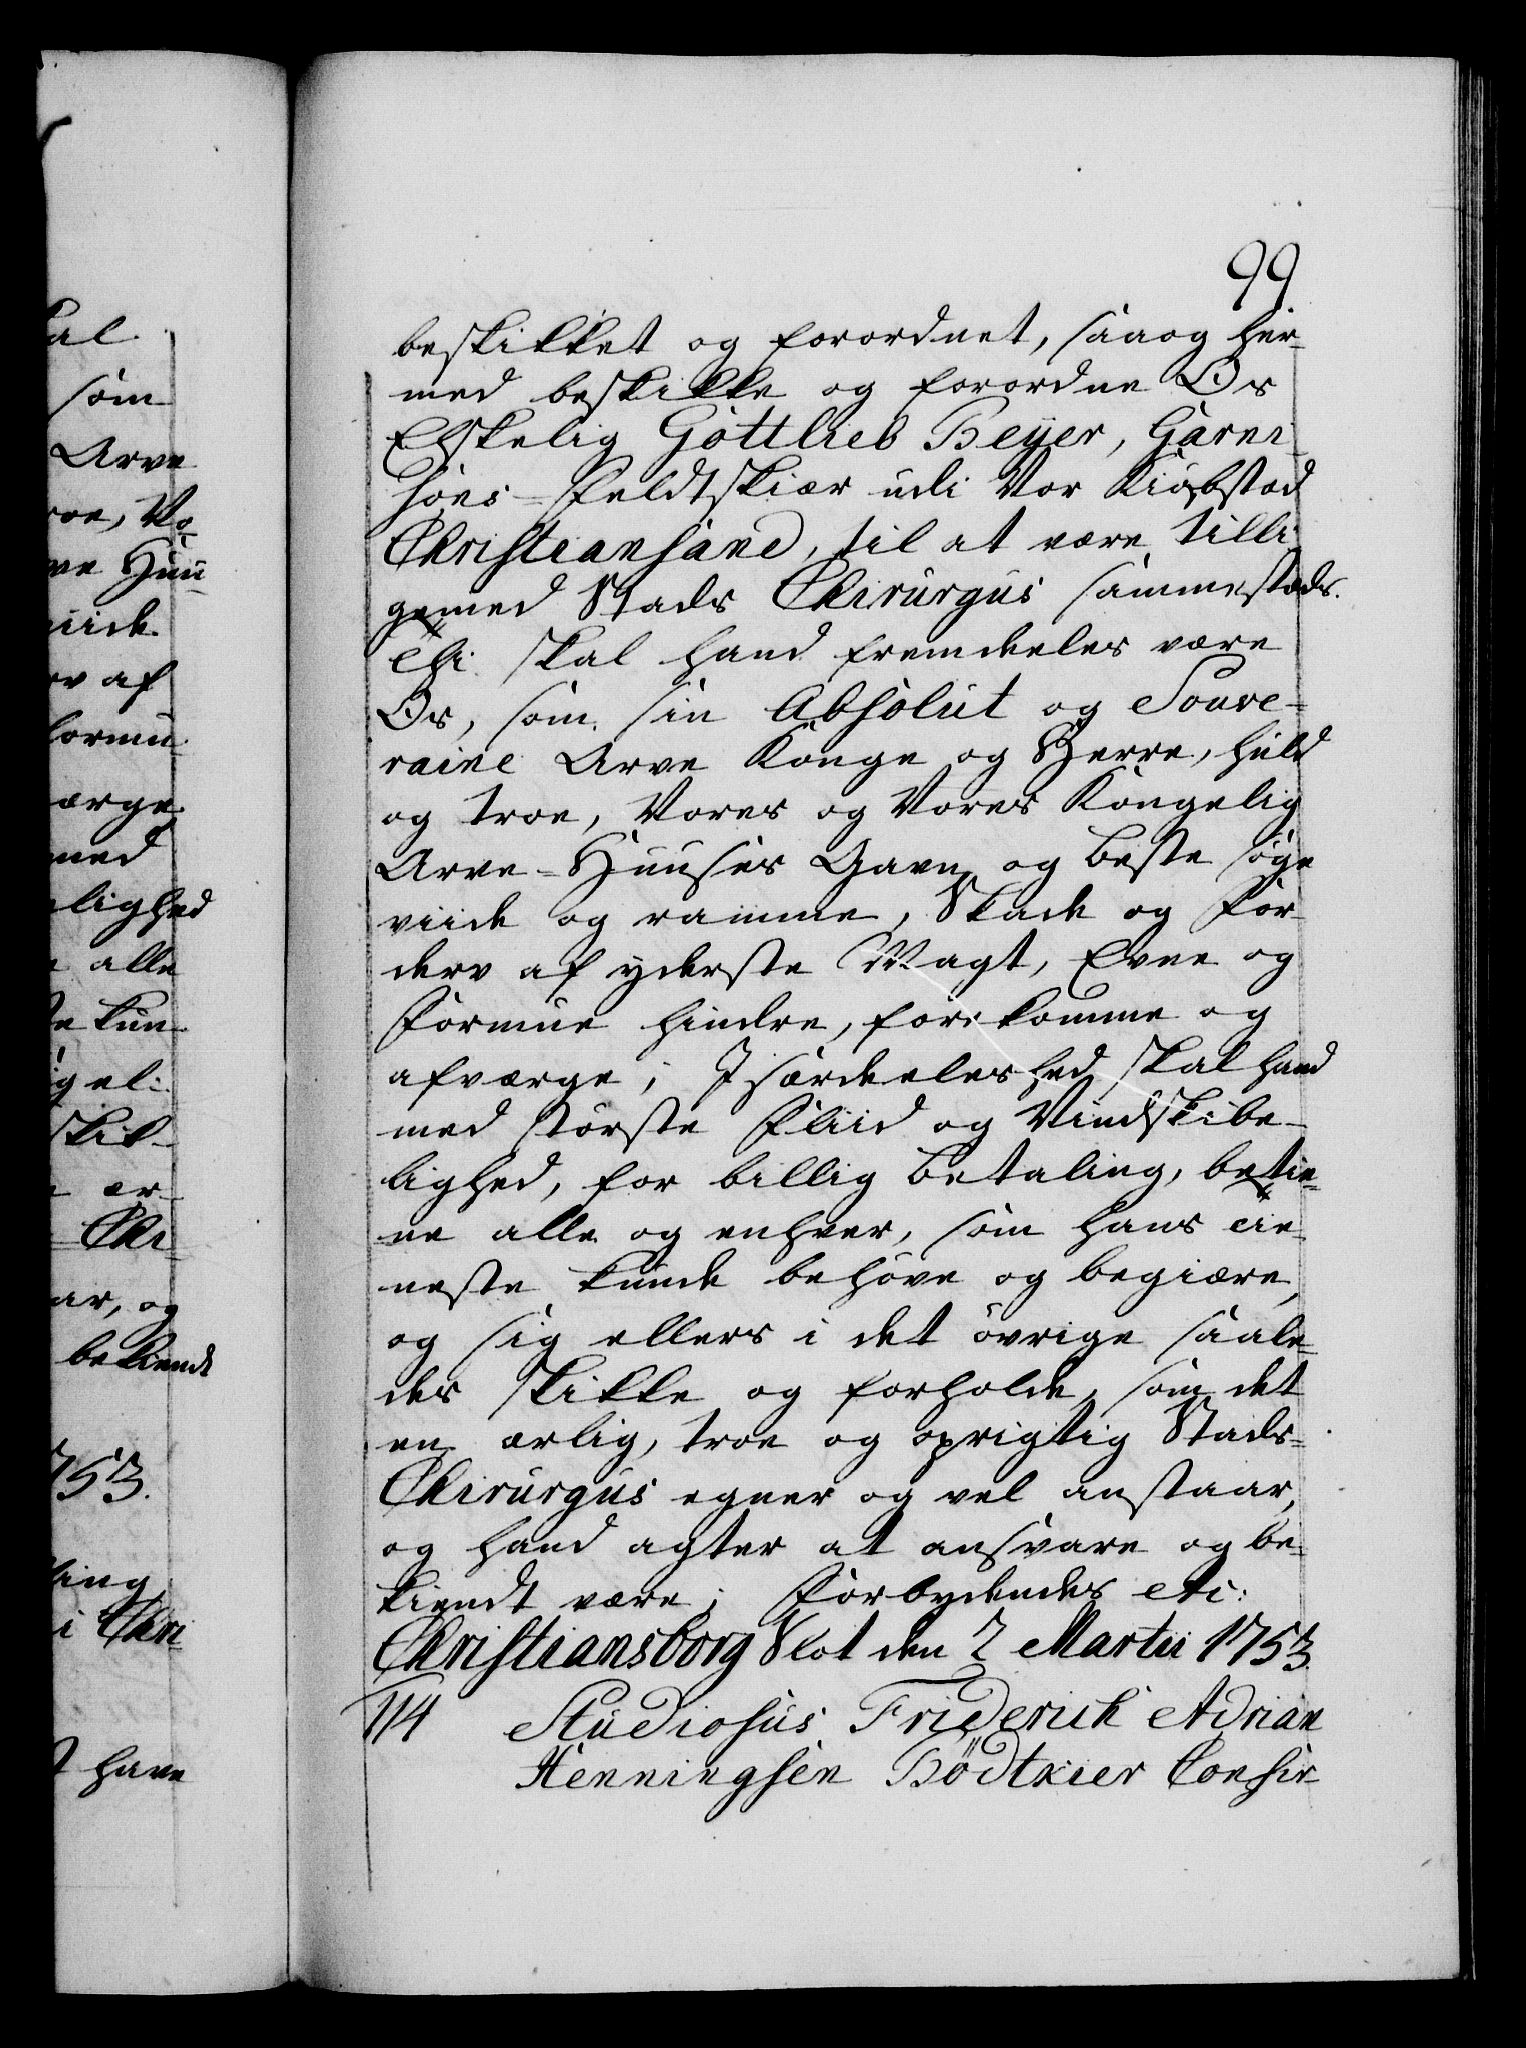 99
beskikket og forordnet, saa og her-
med beskikke og forordne Os
Elskelig Gottlieb Beÿer, Garni-
sons-Feldtskiær udi Vor Kiøbstad
Christiansand, til at være tilli-
gemed Stads Chirurgus sammestæds.
Thi skal hand fremdeeles være
Os, som sin Absolut og Souve-
raine Arve Konge og Herre, huld
og troe, Vores og Vores Kongelig
Arve-Huuses Gavn og beste søge
viide og ramme, Skade og For-
derv af yderste Magt, Evne og
Formue hindre, forekomme og
afværge; Isærdeeleshed skal hand
med største Fliid og Vindskibe-
lighed, for billig Betaling, betie-
ne alle og enhver, som hans tie-
neste kunde behøve og begiære,
og sig ellers i det øvrige saale-
des skikke og forholde, som det
en ærlig, troe og oprigtig Stads-
Chirurgus egner og vel anstaar,
og hand agter at ansvare og be-
kiendt være; Forbydendes etc:
Christiansborg Slot den 2 Martii 1753.
114 Studiosus Friderich Adrian
Henningsen Bödtkier Confir-
al
som
Arve
roe, Vo-
ve Huu-
viide
rv af
formu
værge
med
lighed
alle
kun
gel:
skik-
ær-
Chi-
ar, og
bekiendt
753.
ling
i Chri-
have